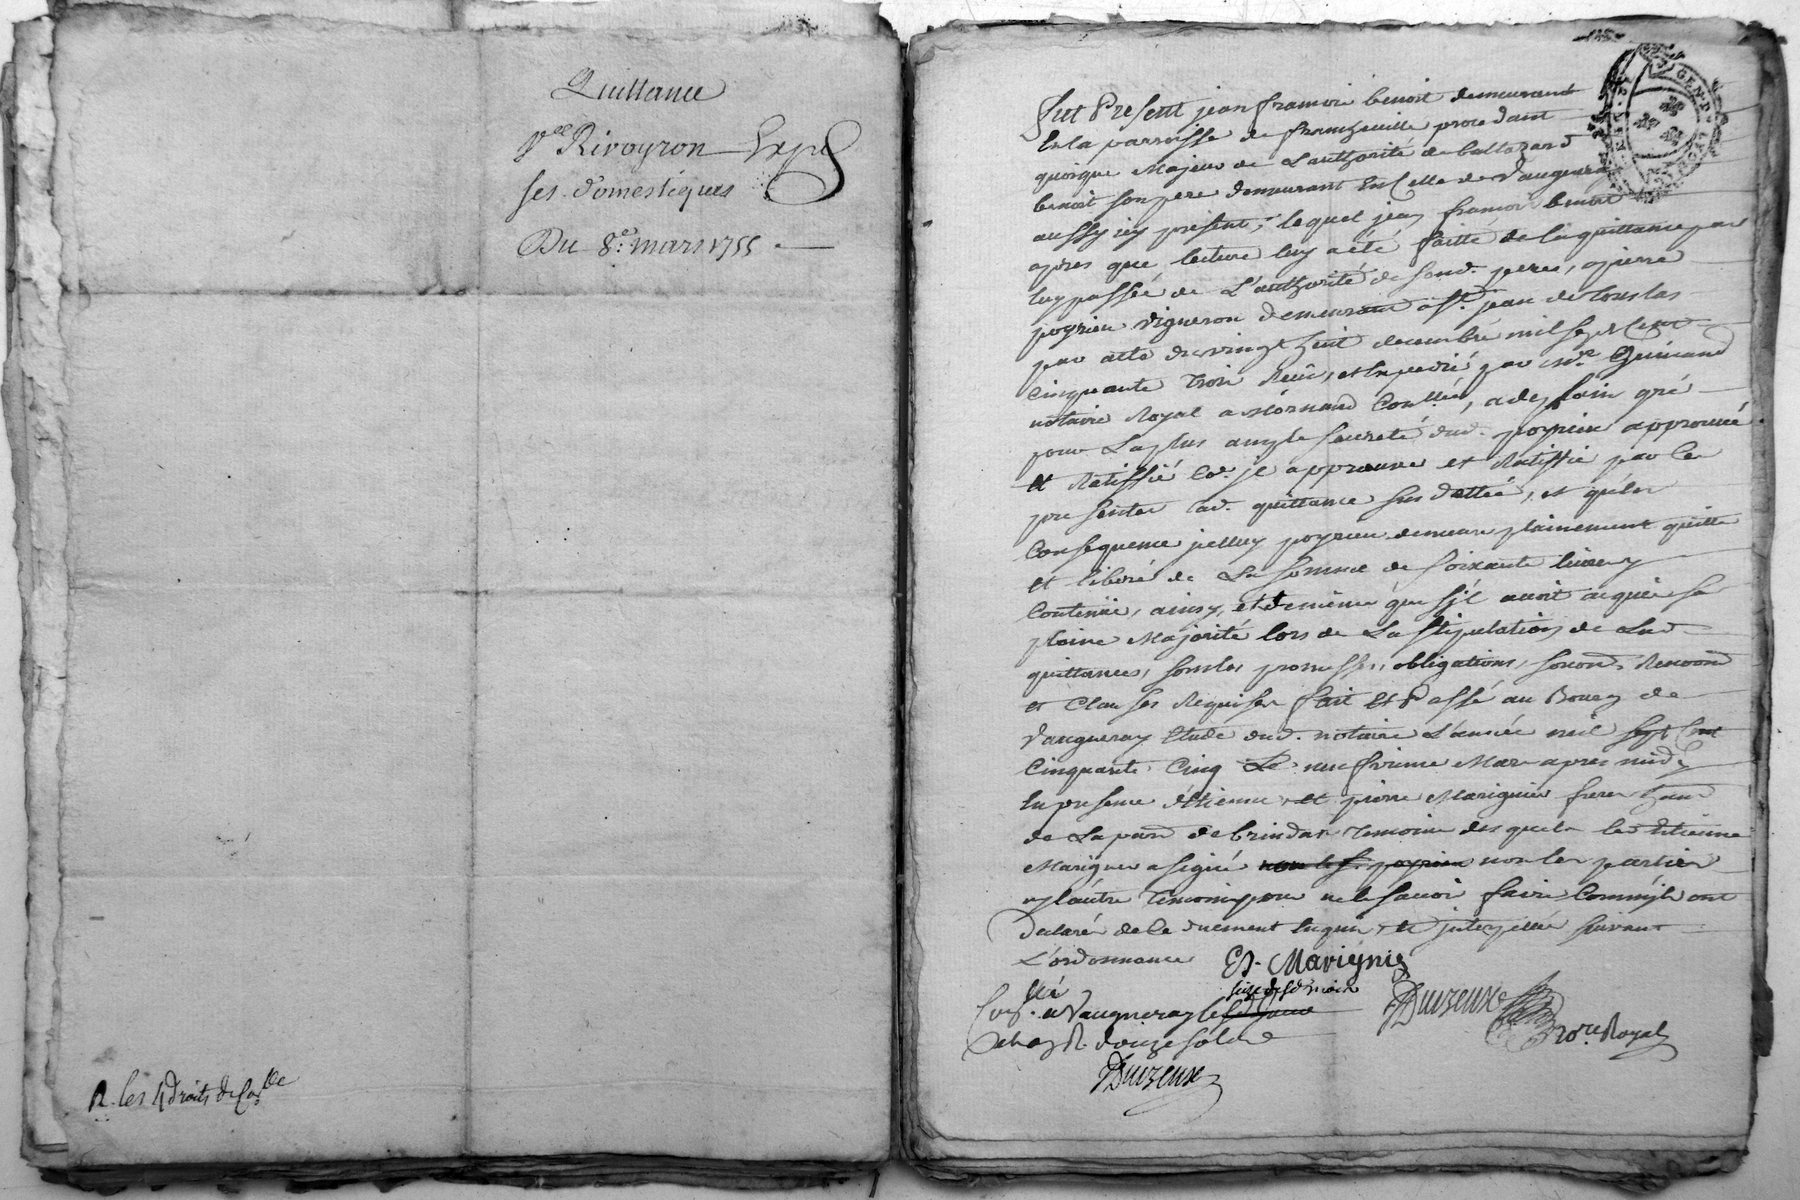 Quittance
Vve Rivoyron Exped
ses domestiques
Du 8e. mars 1755
R. les 4 droits de
Fut Present jean francois benoit demeurant
En la parroisse de francheville procedant
quoique Majeur de Lauthorité de baltazard
benoit son pere demeurant En Celle de Vaugneray
aussy icy présent, lequel jean francois benoit
apres que lecture luy a été faitte de la quittance par
luy passée de L'authorité de sond. pere, a pierre
poyrieu vigneron demeurant a St. jean de touslas
par acte du vingt huit decembre mil sept Cent
Cinquante trois Reçu, et Expedié par Me.
notaire Royal a Mornand Conllé, a de son gré
pour La plus ample seureté dud. poyrieu approuvé
et Ratiffié Co. il approuve et Ratiffie par les
presentes lad. quittance sus dattée, et qu'en
Consequence jcelluy poyrieu demeure plainement quitte
et liberé de La somme de soixante livres y
Contenüe, ainsy, et de même que s'jl avoit acquis sa
plaine Majorité lors de La stipulation de Lad.
quittance, sous les promesses, obligations, renond
et Clauses Requises fait et Passé au Bourg de
Vaugneray Etude dud. notaire L'année mil sept Cent
Cinquante Cinq Le neufvieme Mars apres midy
En presence d'Etienne et pierre Marignier freres
de La par. de brindas temoins des quels led. Etienne
Marignier a signé non les parties
ny l'autre temoin pour ne le savoir faire Comm'jls ont
declaré de ce duement Enquis et jnterpellés suivant
L'ordonnance Et. Marignie
Duvzeux nore. Royal
a Vaugneray le seize desd. mois
Reçu douze sols
Duvzeux